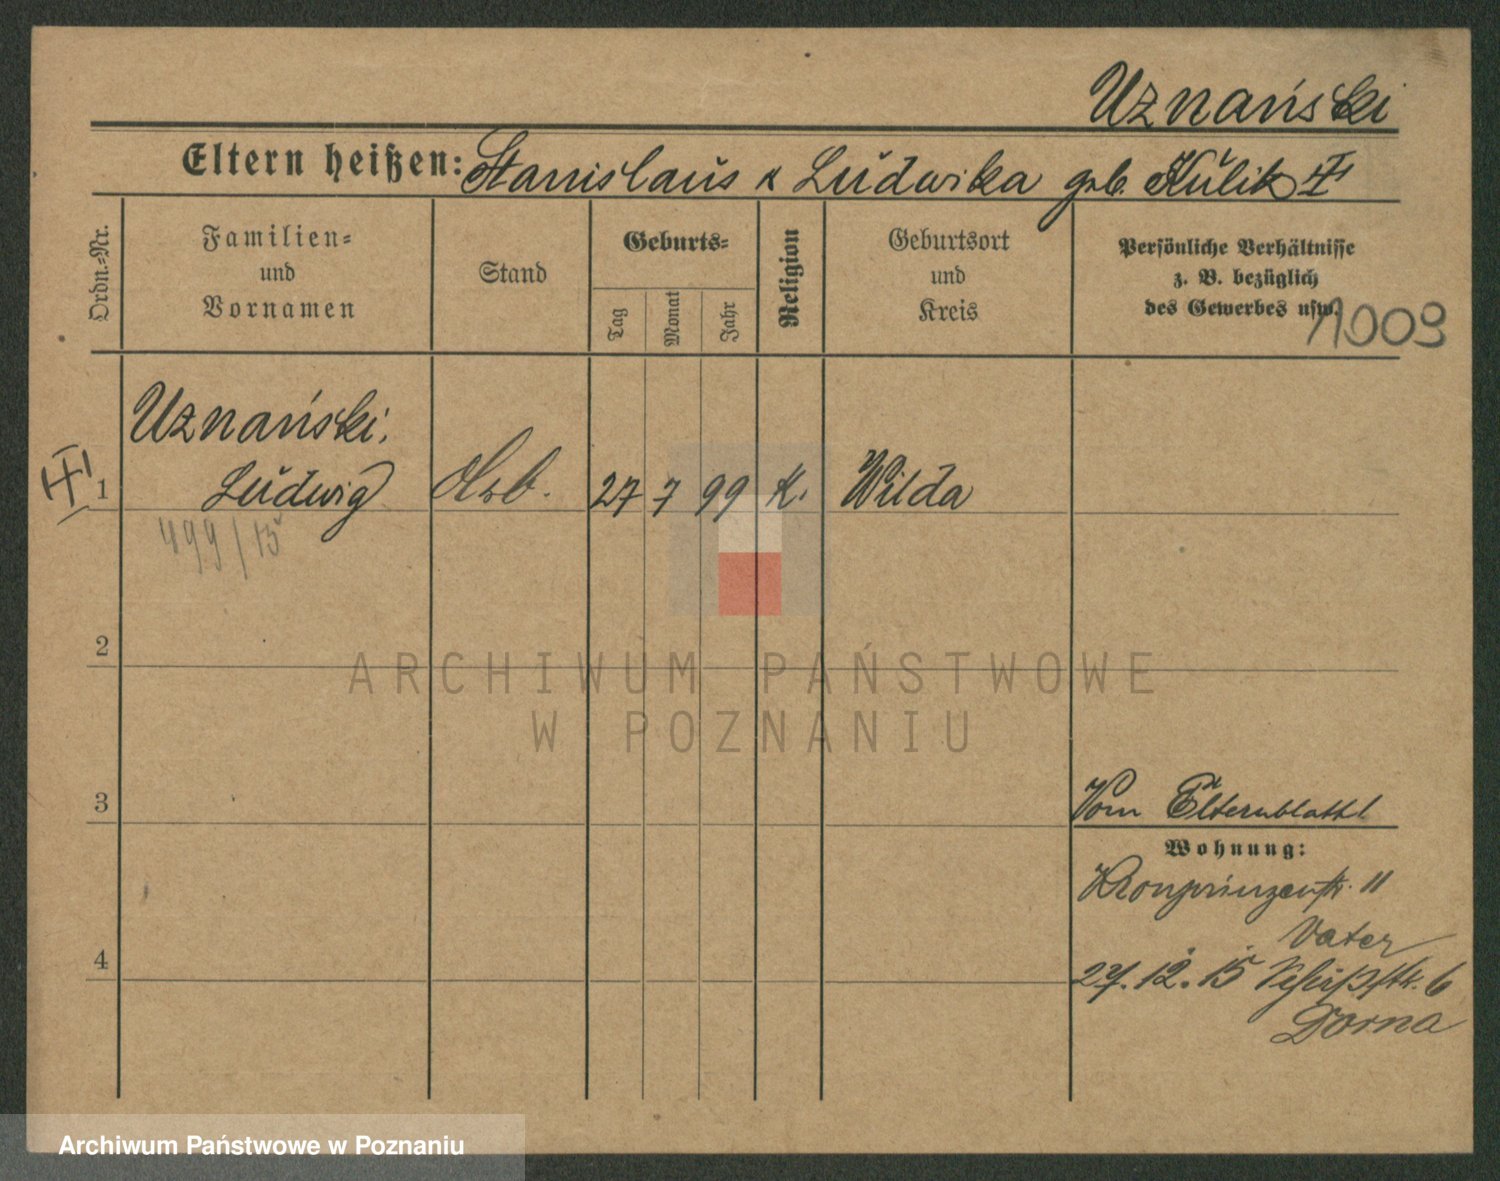 Uznański
Eltern heißen: Stanislaus & Ludwika geb. Kulik
Ordn.-Nr.
Familien-
und
Vornamen
Stand
Geburts-
Tag
Monat
Jahr
Religion
Geburtsort
und
Kreis
Persönliche Verhältnisse
z. B. bezüglich
des Gewerbes usw.
1009
Uznański,
1 Ludwig
27 7 99 K. Wilda
499/15
2
ARCHIWUM PAŃSTWOWE
W POZNANIU
3
Vom Elternblatt
Wohnung:
Kronprinzenstr. 11
Vater
4
27.12.15 6
Dorna
Archiwum Państwowe w Poznaniu